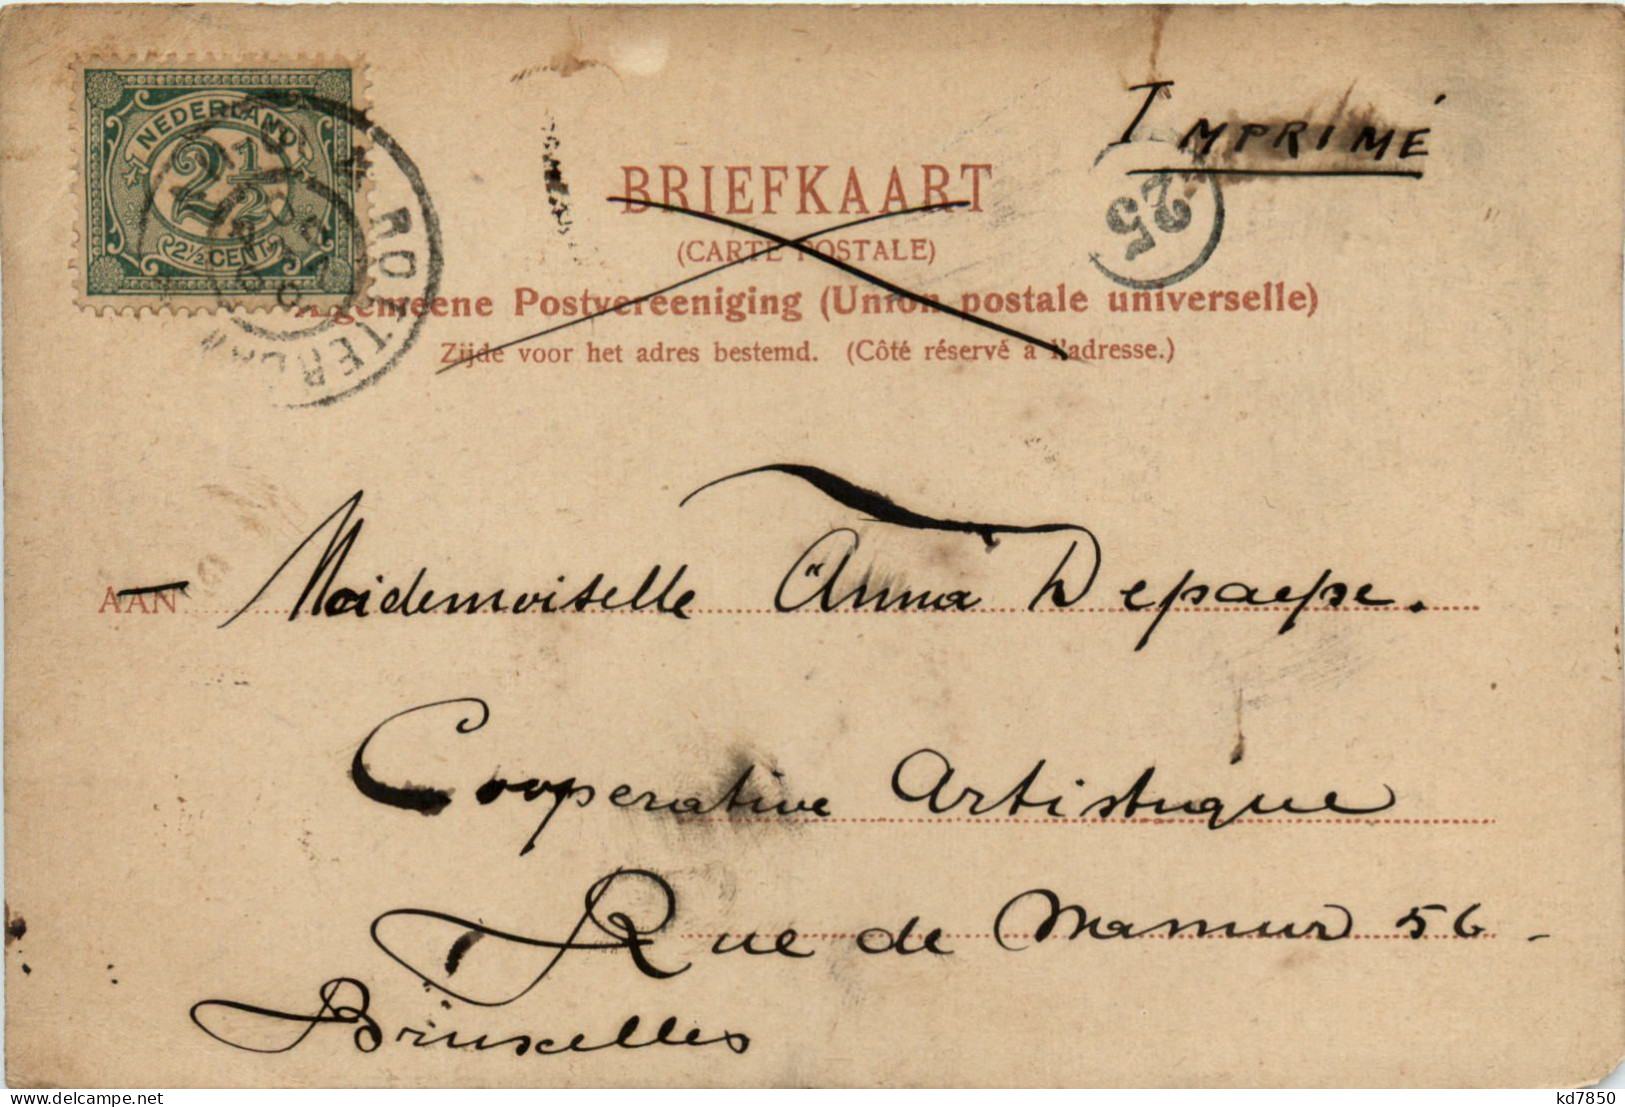 NEDERLAND
2½
2½ CENT
ROTTERDAM
IMPRIMÉ
25
BRIEFKAART
(CARTE POSTALE)
Algemeene Postvereeniging (Union postale universelle)
Zijde voor het adres bestemd. (Côté réservé à l'adresse.)
AAN Mademoiselle Anna Depaepe.
Cooperative Artistique
Rue de Namur 56 -
Bruxelles
kd7850